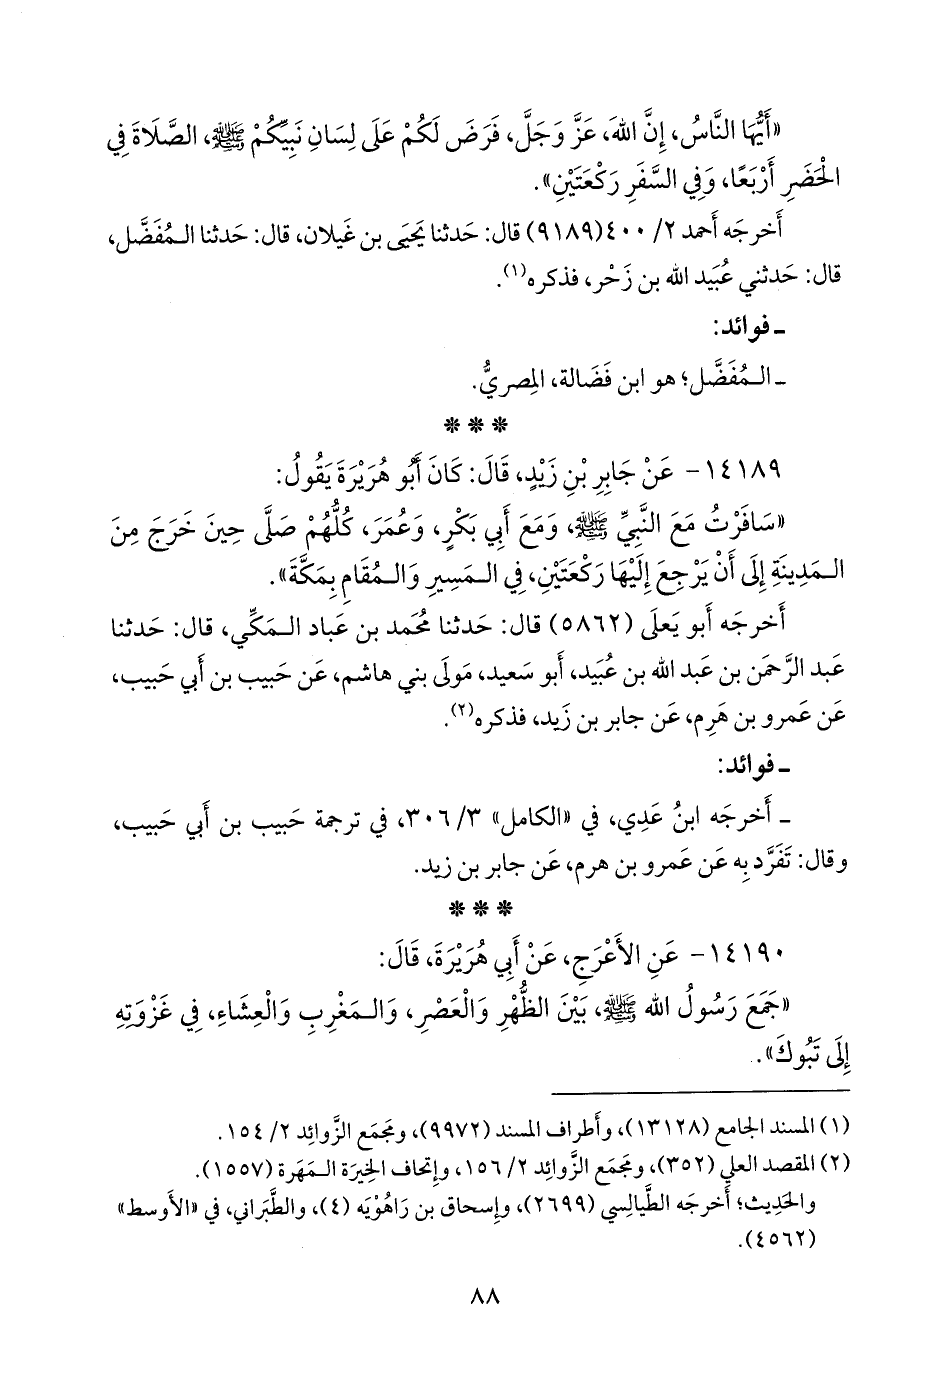 «أَيُّهَا النَّاسُ، إِنَّ اللهَ، عَزَّ وَجَلَّ، فَرَضَ لَكُمْ عَلَى لِسَانِ نَبِيِّكُمْ ﷺ، الصَّلَاةَ فِي
الْحَضَرِ أَرْبَعًا، وَفِي السَّفَرِ رَكْعَتَيْنِ».
أَخرجَه أَحمد ٢/ ٤٠٠(٩١٨٩) قال: حَدثنا يَحيَى بن غَيلان، قال: حَدثنا الـمُفَضَّل،
قال: حَدثني عُبَيد الله بن زَحْر، فذكره(١).
ـ فوائد:
ـ الـمُفَضَّل؛ هو ابن فَضَالة، المِصريُّ.
* * *
١٤١٨٩- عَنْ جَابِرِ بْنِ زَيْدٍ، قَالَ: كَانَ أَبُو هُرَيْرَةَ يَقُولُ:
«سَافَرْتُ مَعَ النَّبِيِّ ﷺ، وَمَعَ أَبِي بَكْرٍ، وَعُمَرَ، كُلُّهُمْ صَلَّى حِينَ خَرَجَ مِنَ
الـمَدِينَةِ إِلَى أَنْ يَرْجِعَ إِلَيْهَا رَكْعَتَيْنِ، فِي الـمَسِيرِ وَالـمُقَامِ بِمَكَّةَ».
أَخرجَه أَبو يَعلَى (٥٨٦٢) قال: حَدثنا مُحَمد بن عَباد الـمَكِّي، قال: حَدثنا
عَبد الرَّحمَن بن عَبد الله بن عُبَيد، أَبو سَعيد، مَولَى بني هاشم، عَن حَبيب بن أَبي حَبيب،
عَن عَمرو بن هَرِم، عَن جابر بن زَيد، فذكره(٢).
ـ فوائد:
ـ أَخرجَه ابنُ عَدِي، في «الكامل» ٣/ ٣٠٦، في ترجمة حَبيب بن أَبي حَبيب،
وقال: تَفَرَّد بِه عَن عَمرو بن هرم، عَن جابر بن زيد.
* * *
١٤١٩٠- عَنِ الأَعْرَجِ، عَنْ أَبِي هُرَيْرَةَ، قَالَ:
«جَمَعَ رَسُولُ الله ﷺ، بَيْنَ الظُّهْرِ وَالْعَصْرِ، وَالـمَغْرِبِ وَالْعِشَاءِ، فِي غَزْوَتِهِ
إِلَى تَبُوكَ».
(١) المسند الجامع (١٣١٢٨)، وأَطراف المسند (٩٩٧٢)، ومَجمَع الزَّوائِد ٢/ ١٥٤.
(٢) المقصد العلي (٣٥٢)، ومَجمَع الزَّوائِد ٢/ ١٥٦، وإِتحاف الخِيرَة الـمَهَرة (١٥٥٧).
والحَدِيث؛ أَخرجَه الطَّيالِسي (٢٦٩٩)، وإِسحاق بن رَاهُوْيَه (٤)، والطَّبَراني، في «الأَوسط»
(٤٥٦٢).
٨٨